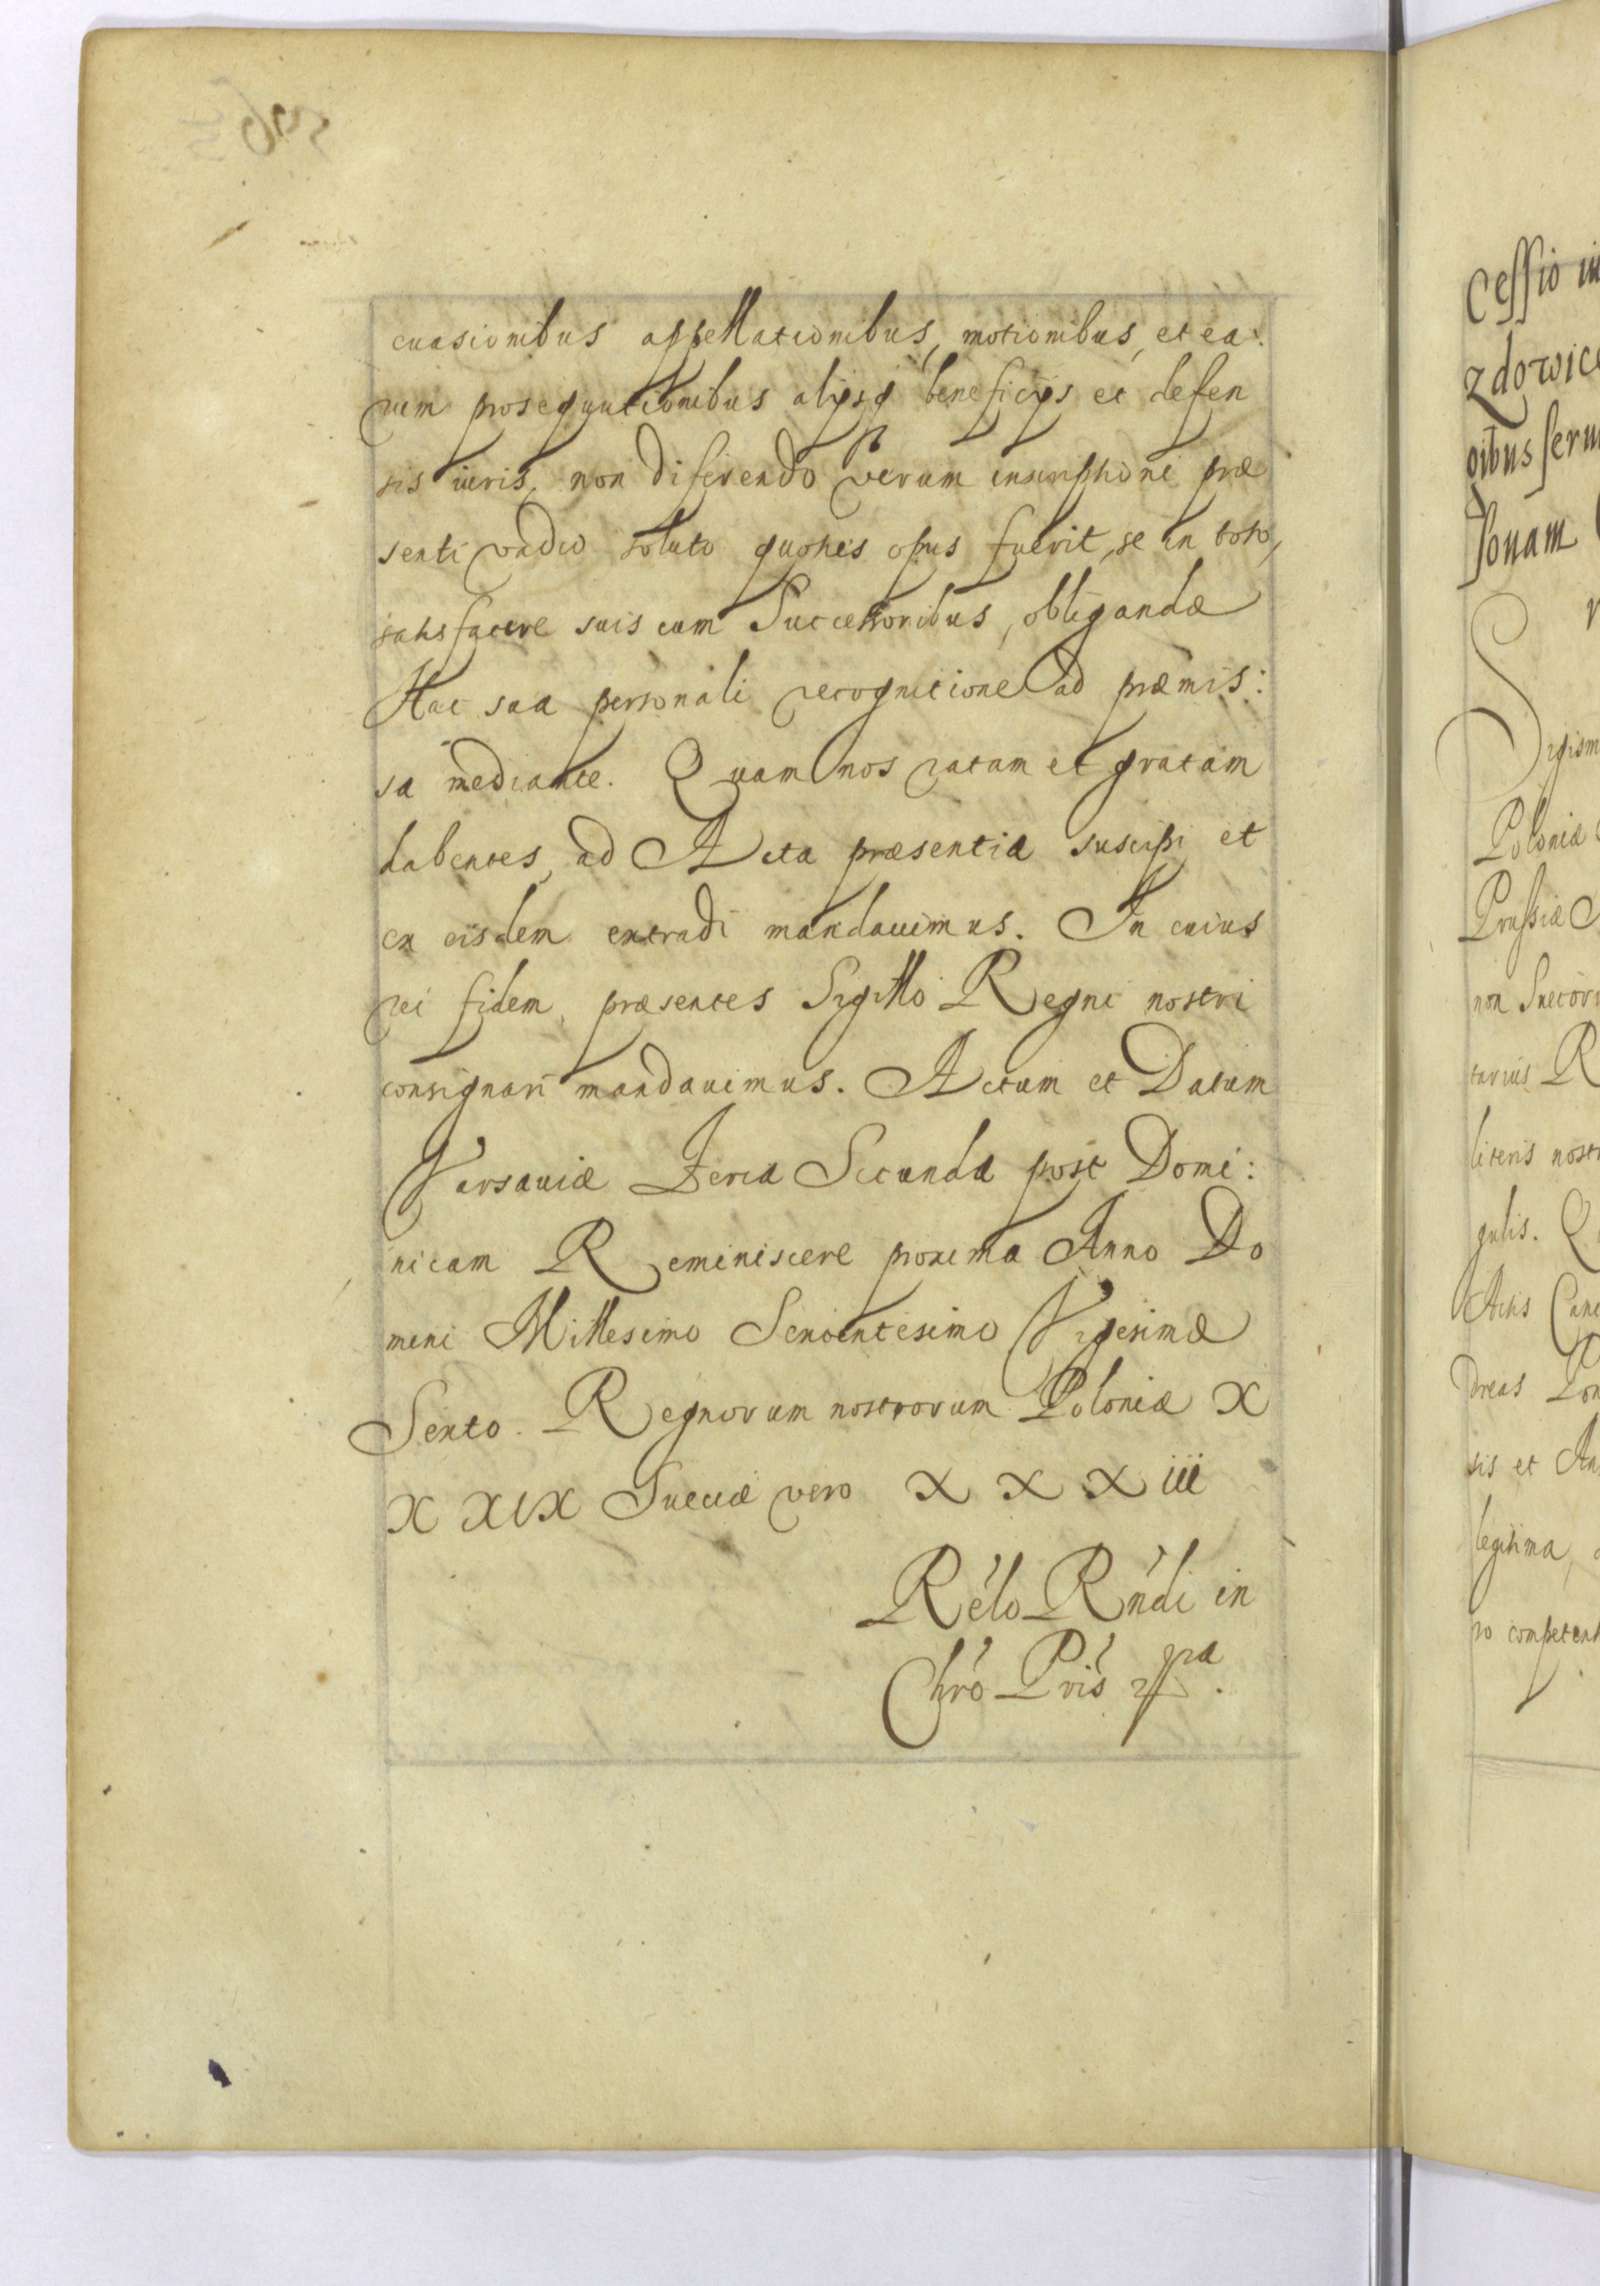 euasionibus appellationibus, motionibus, et ea:
rum prosequutionibus alijsq beneficijs et defen
sis iuris, non diferendo verum inscriptioni præ
senti vadio soluto quoties opus fuerit, se in toto,
satisfacere suis cum Successoribus, obligandæ
Hac sua personali recognitione ad præmis:
sa mediante. Quam nos ratam et gratam
habentes, ad Acta præsentia suscipi et
ex eisdem extradi mandauimus. In cuius
rei fidem, præsentes Sigillo Regni nostri
consignari mandauimus. Actum et Datum
Varsauiæ Feria Secunda post Domi:
nicam Reminiscere proxima Anno Do
mini Millesimo Sexcentesimo Vigesimæ
Sexto. Regnorum nostrorum Poloniæ X
X XIX Sueciæ vero X X X iii
Rélo Rńdi in
Chró Pris
Cessio in
zdowice
oibus seru
sonam
Sigism
Poloniæ
Prussiæ
non Suecor
tarius R
literis nostr
gulis. Q
Actis Canc
dreas
sis et
legitima,
ro competent